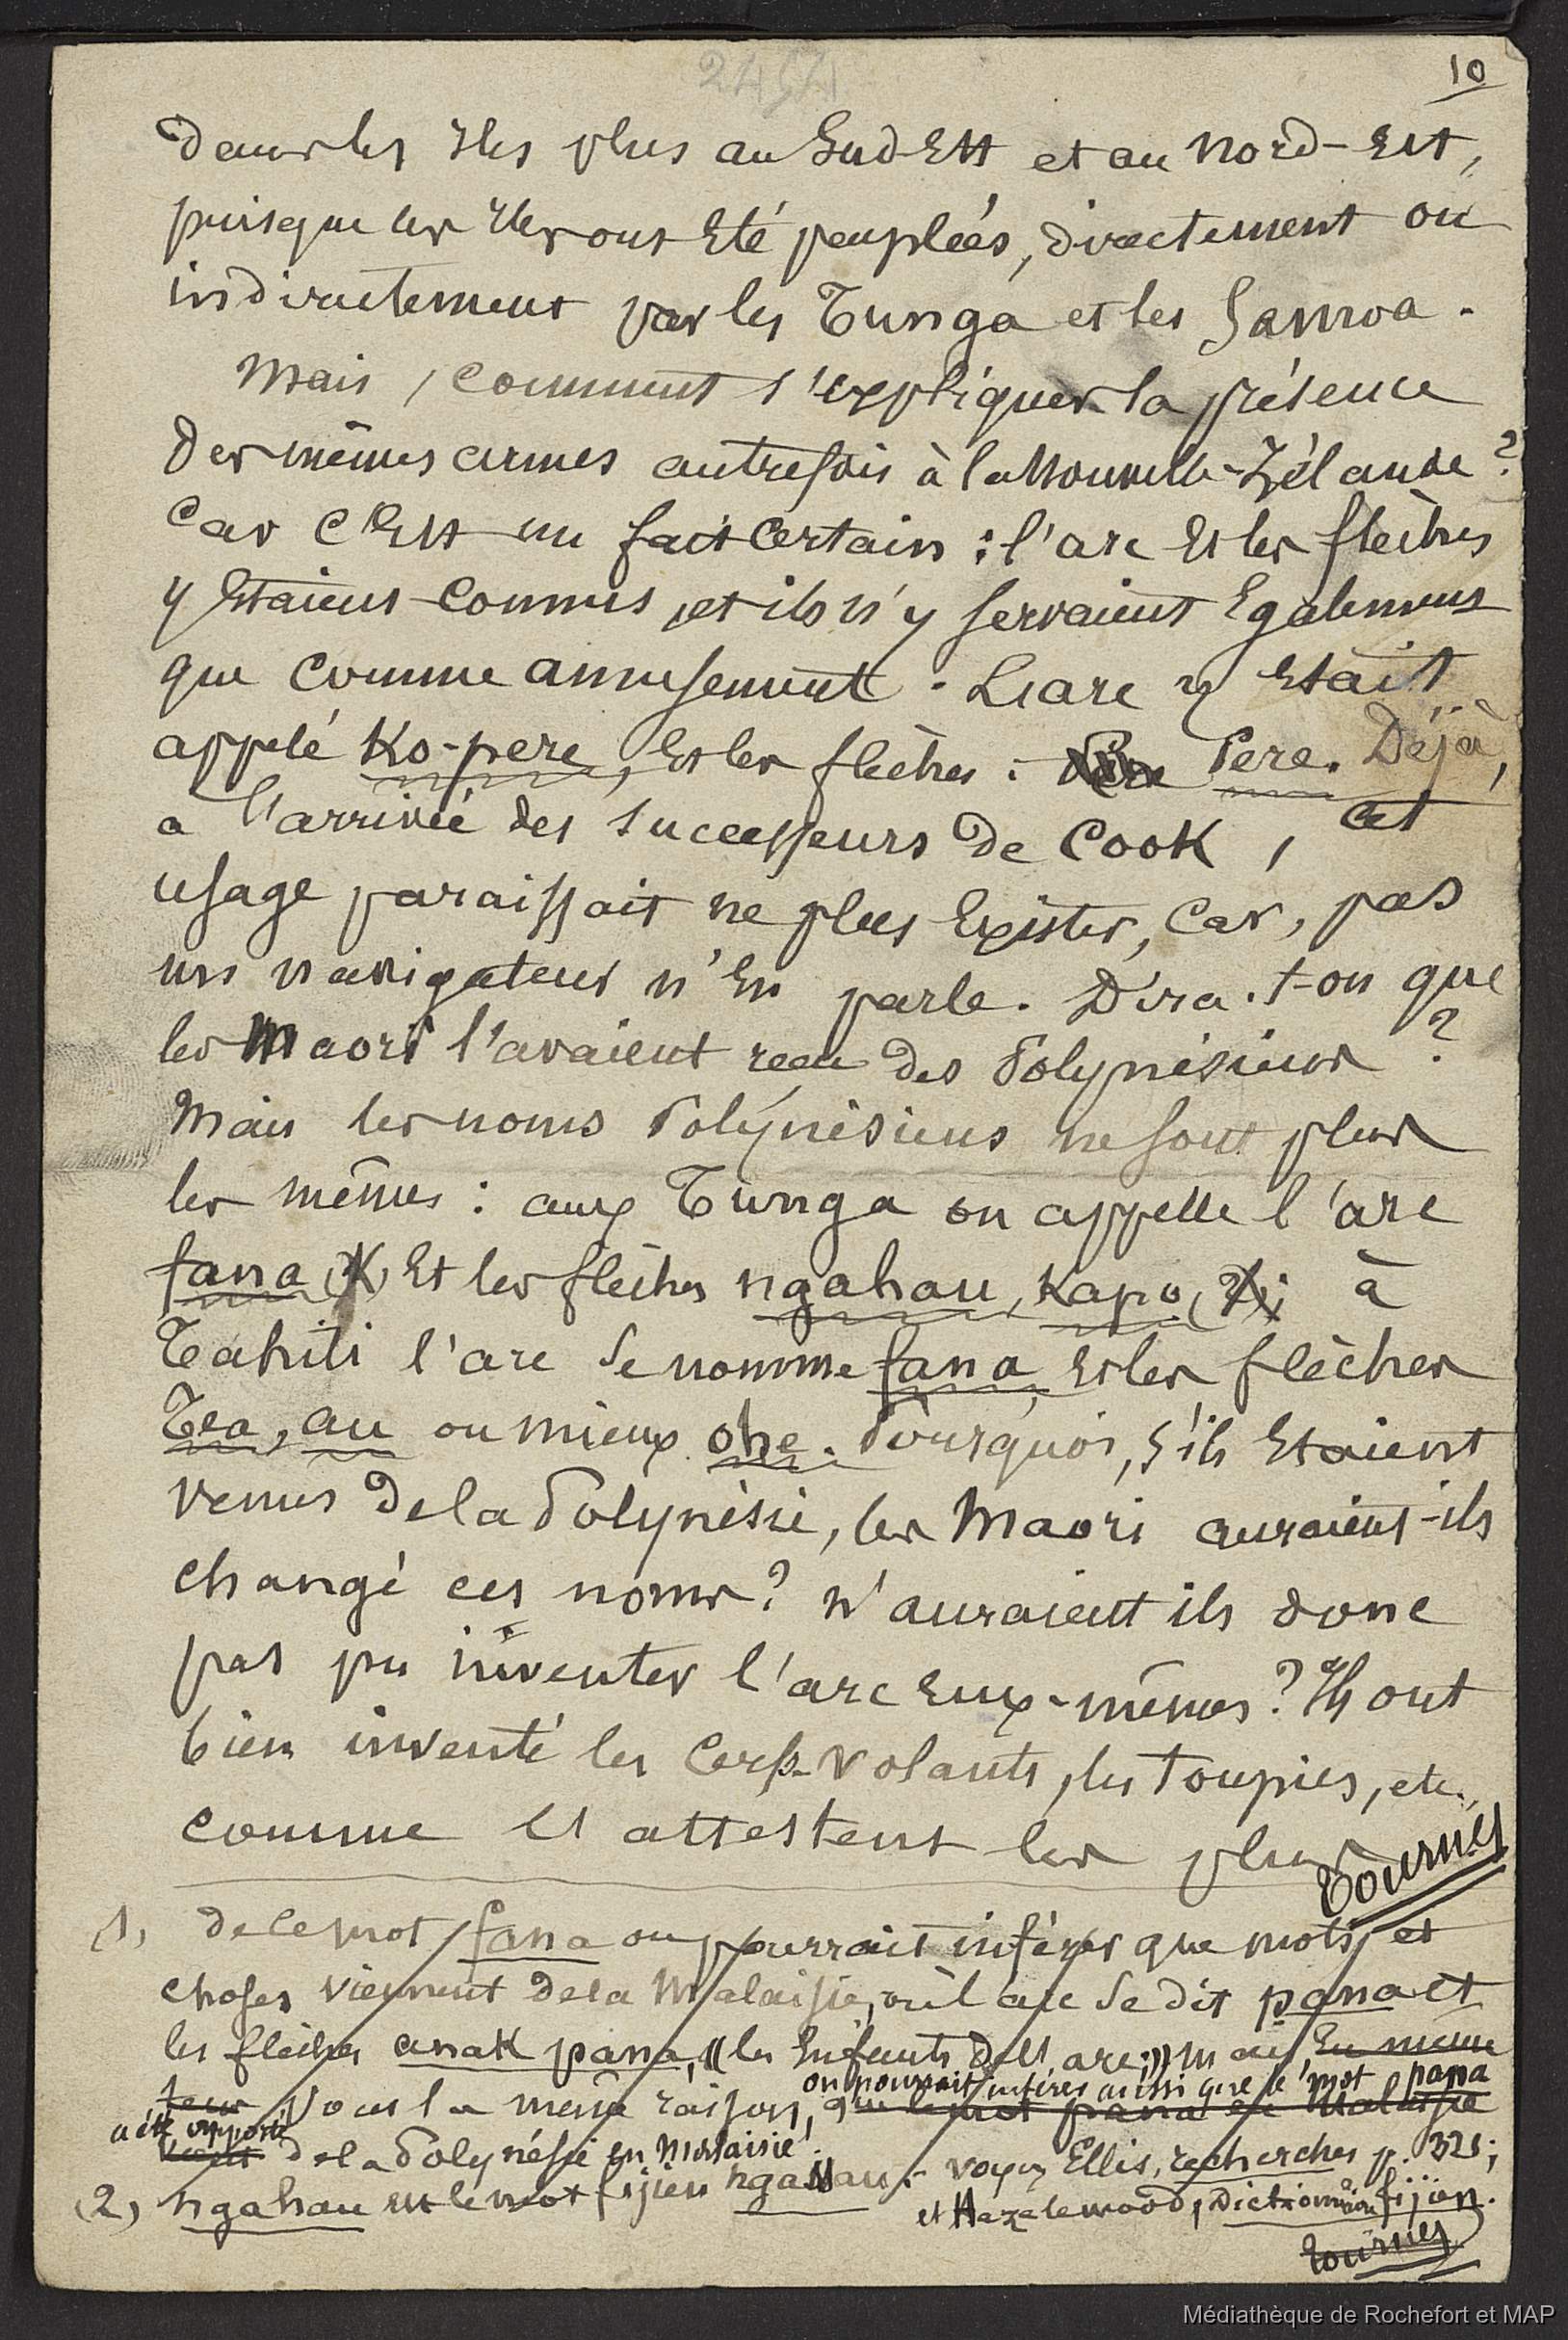 2454
10
dans les Iles plus au Sud-Est et au Nord-Est,
puisque les Iles ont été peuplées, directement ou
indirectement par les Tunga et les Samoa.
Mais, comment s'expliquer la présence
des mêmes armes autrefois à la Nouvelle-Zélande?
Car c'est un fait certain : l'arc et les flèches
y étaient connus, et ils n'y servaient également
que comme amusement. L'arc y était
appelé Ko-pere, et les flèches : Pere. Déjà,
a l'arrivée des successeurs de Cook, cet
usage paraissait ne plus exister, car, pas
un navigateur n'en parle. Dira-t-on que
les Maori l'avaient reçu des Polynésiens ?
Mais les noms Polynésiens ne sont plus
les mêmes : aux Tunga on appelle l'arc
fana, et les flèches ngahau, Kapo, ; à
Tahiti l'arc se nomme fana, et les flèches
Tea, au ou mieux ohe. Pourquoi, s'ils étaient
venus de la Polynésie, les Maori auraient-ils
changé ces noms? N'auraient ils donc
pas pu inventer l'arc eux-mêmes? Ils ont
bien inventé les cerfs-volants, les toupies, etc.,
comme l'attestent les plus
Tournez
(1) de ce mot fana on pourrait inférer que mots et
choses viennent de la Malaisie, où l'arc se dit pana et
les flèches anak pana, "les Enfants de l'arc;" mais en même
on pourrait inférer aussi que le mot pana
pour la même raison, que le mot pana en Malaisie
a été apporté
vient de la Polynésie en Malaisie.
(2) ngahau est le mot fijien ngasau :- voyez Ellis, recherches p. 321;
et Hazelewood, Dictionnaire fijien.
Tournez
Médiathèque de Rochefort et MAP